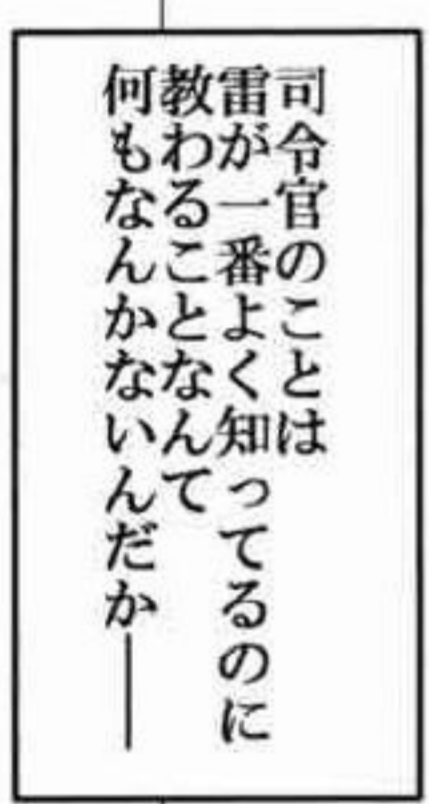 司令官のことは
雷が一番よく知ってるのに
教わることなんて
何もなんかないんだか――